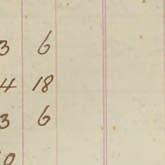 3 6
4 18
3 6
0